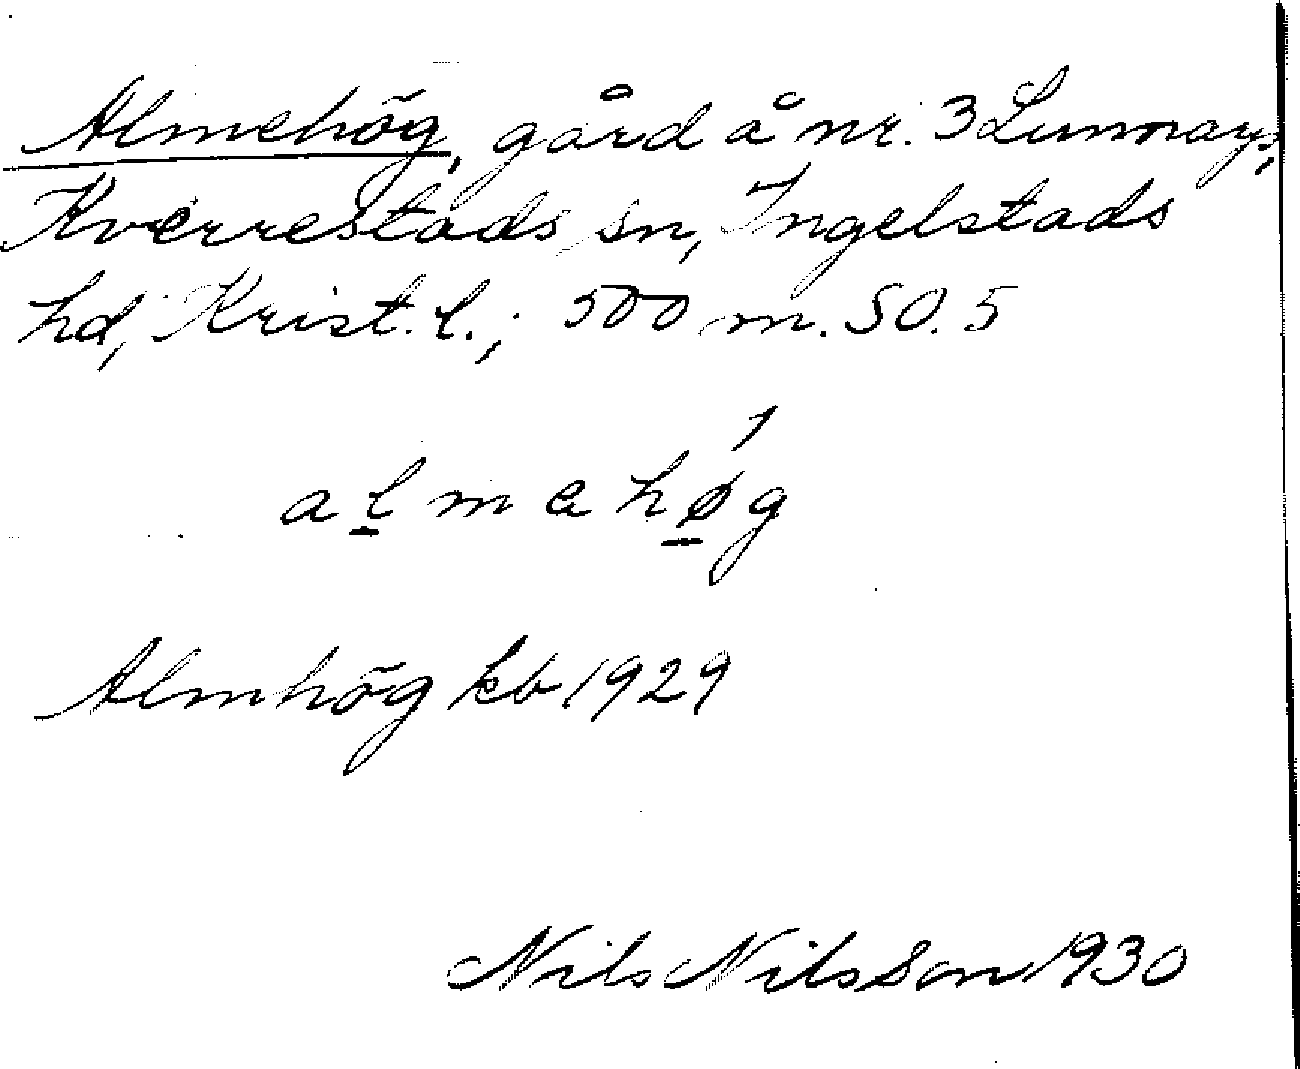 Almehög, gård å nr. 3 Lunnarp,
Kverrestads sn, Ingelstads
hd, Krist. l.; 500 m. SO. 5
almahøg
Almhög kb 1929
Nils Nilsson 1930